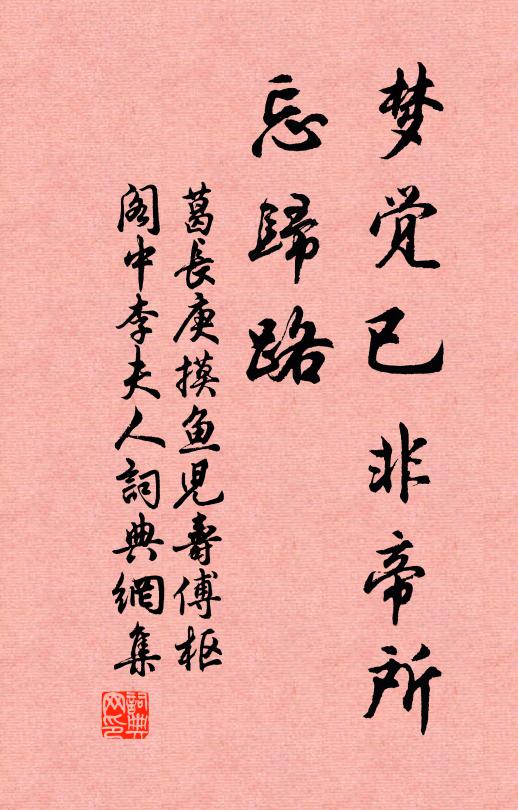 梦觉已非帝所
忘歸路
葛長庚摸鱼児壽傅枢
阁中李夫人詞典網集
詞典网印